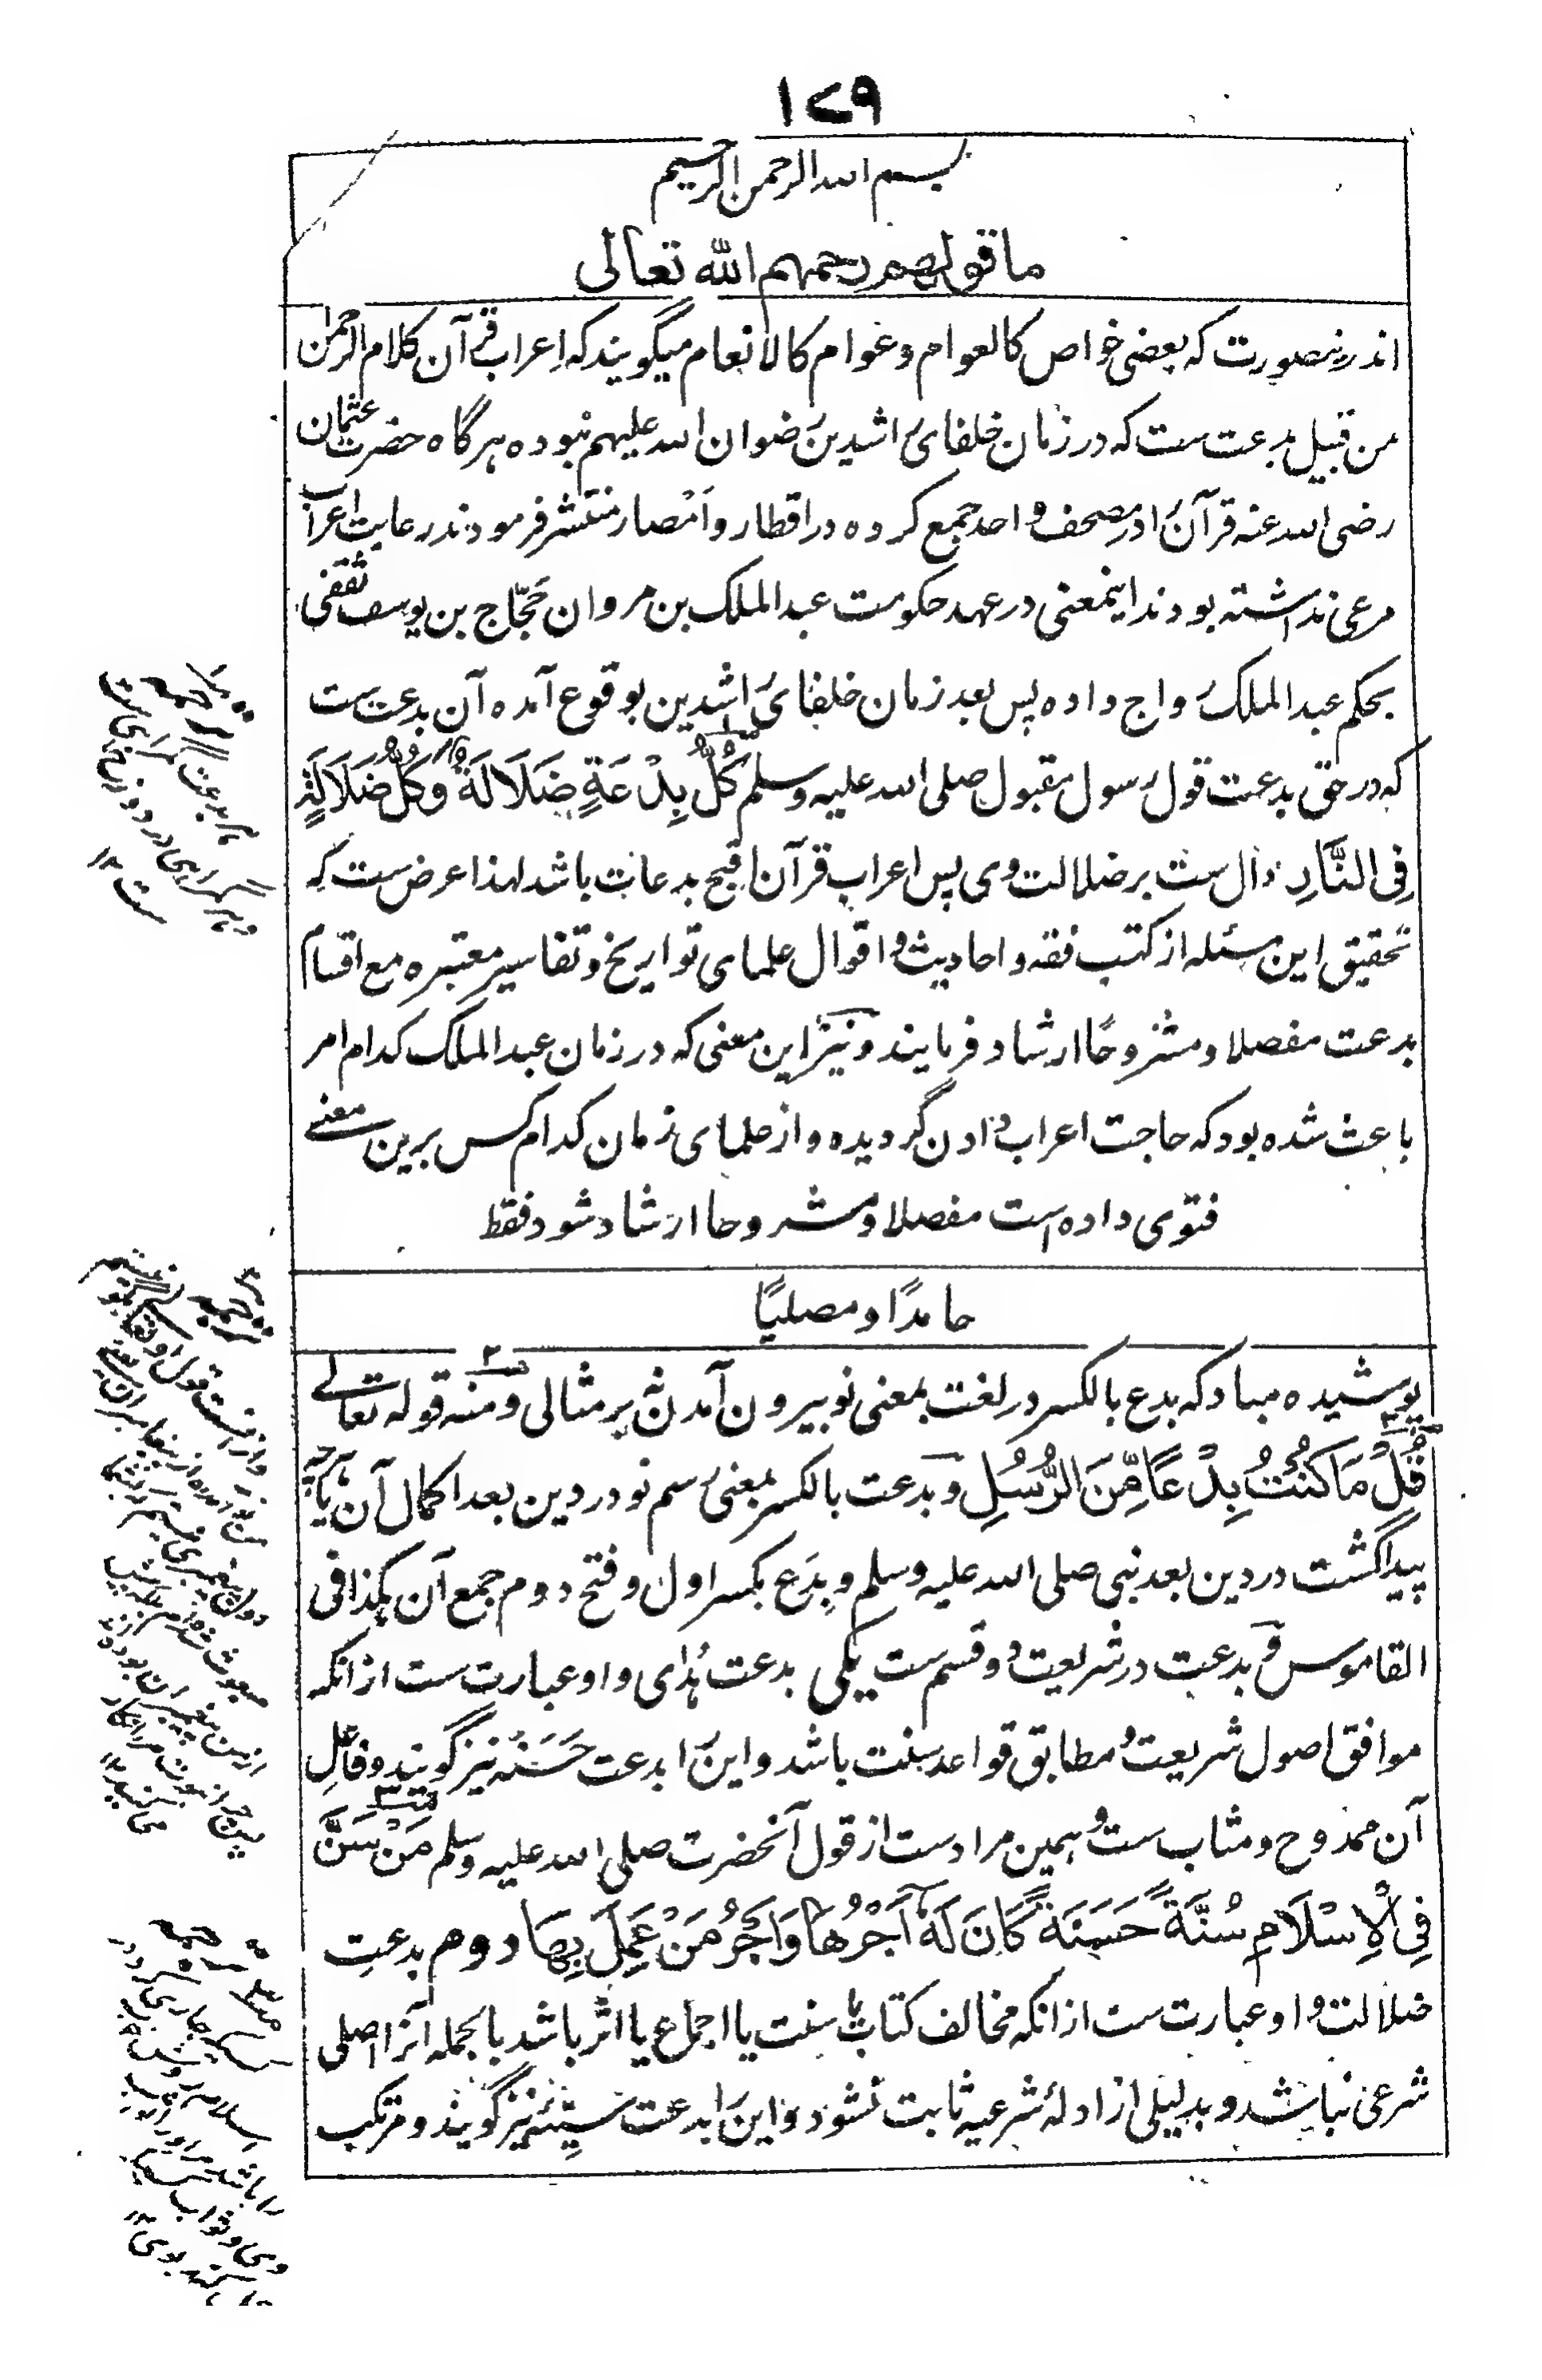 ۱۷۹
بسم الله الرحمن الرحیم
ما قولهم رحمهم الله تعالی
اندرینصورت که بعضی خواص کالعوام و عوام کالانعام میگویند که اعراب قرآن کلام الرحمن
من قبیل بدعت ست که در زمان خلفای راشدین رضوان الله علیهم نبوده هرگاه حضرت عثمان
رضی الله عنه قرآن را در مصحف واحد جمع کرده در اقطار و اَمْصار منتشر فرمودند رعایت اعراب
مرعی نداشته بودند اینمعنی در عهد حکومت عبدالملک بن مروان حَجّاج بن یوسف ثقفی
بحکم عبدالملک رواج داده پس بعد زمان خلفای راشدین بوقوع آمده آن بدعت ست
که در حق بدعت قول رسول مقبول صلی الله علیه وسلم کُلُّ بِدْعَةٍ ضَلَالَةٌ وَکُلُّ ضَلَالَةٍ
فِی النَّارِ دال ست بر ضلالت وی پس اعراب قرآن اقبح بدعات باشد لهذا عرض ست که
تحقیق این مسئله از کتب فقه و احادیث و اقوال علمای تواریخ و تفاسیر معتبره مع اقسام
بدعت مفصلا و مشروحًا ارشاد فرمایند و نیز این معنی که در زمان عبدالملک کدام امر
باعث شده بود که حاجت اعراب دادن گردیده و از علمای زمان کدام کس برین معنے
فتوی داده است مفصلا و مشروحا ارشاد شود فقط
حامدًا و مصلیًا
پوشیده مباد که بدع بالکسر در لغت بمعنی نو بیرون آمدن نه بر مثالی و منه قوله تعالے
قُلْ مَا کُنْتُ بِدْعًا مِّنَ الرُّسُلِ و بدعت بالکسر بمعنی رسم نو در دین بعد اکمال آن یا هرچه
پیدا گشت در دین بعد نبی صلی الله علیه وسلم و بِدَع بکسر اول و فتح دوم جمع آن کذا فی
القاموس و بدعت در شریعت دو قسم ست یکی بدعت هُدٰی و او عبارت ست از انکه
موافق اصول شریعت و مطابق قواعد سنت باشد و این را بدعت حَسَنه نیز گویند و فاعل
آن ممدوح و مثاب ست و همین مراد ست از قول آنحضرت صلی الله علیه وسلم مَنْ سَنَّ
فِی الْاِسْلَامِ سُنَّةً حَسَنَةً کَانَ لَهٗ اَجْرُهَا وَاَجْرُ مَنْ عَمِلَ بِهَا دوم بدعتِ
ضلالت و او عبارت ست از انکه مخالف کتاب یا سنت یا اجماع یا اثر باشد بالجمله آنرا اصلی
شرعی نباشد و بدلیلی از ادلهٔ شرعیه ثابت نشود و این را بدعت سیئه نیز گویند و مرتکب
ترجمه
هر بدعت گمراهی ست
و هر گمراهی در دوزخ
ست ۱۲
ترجمه
ترجمه